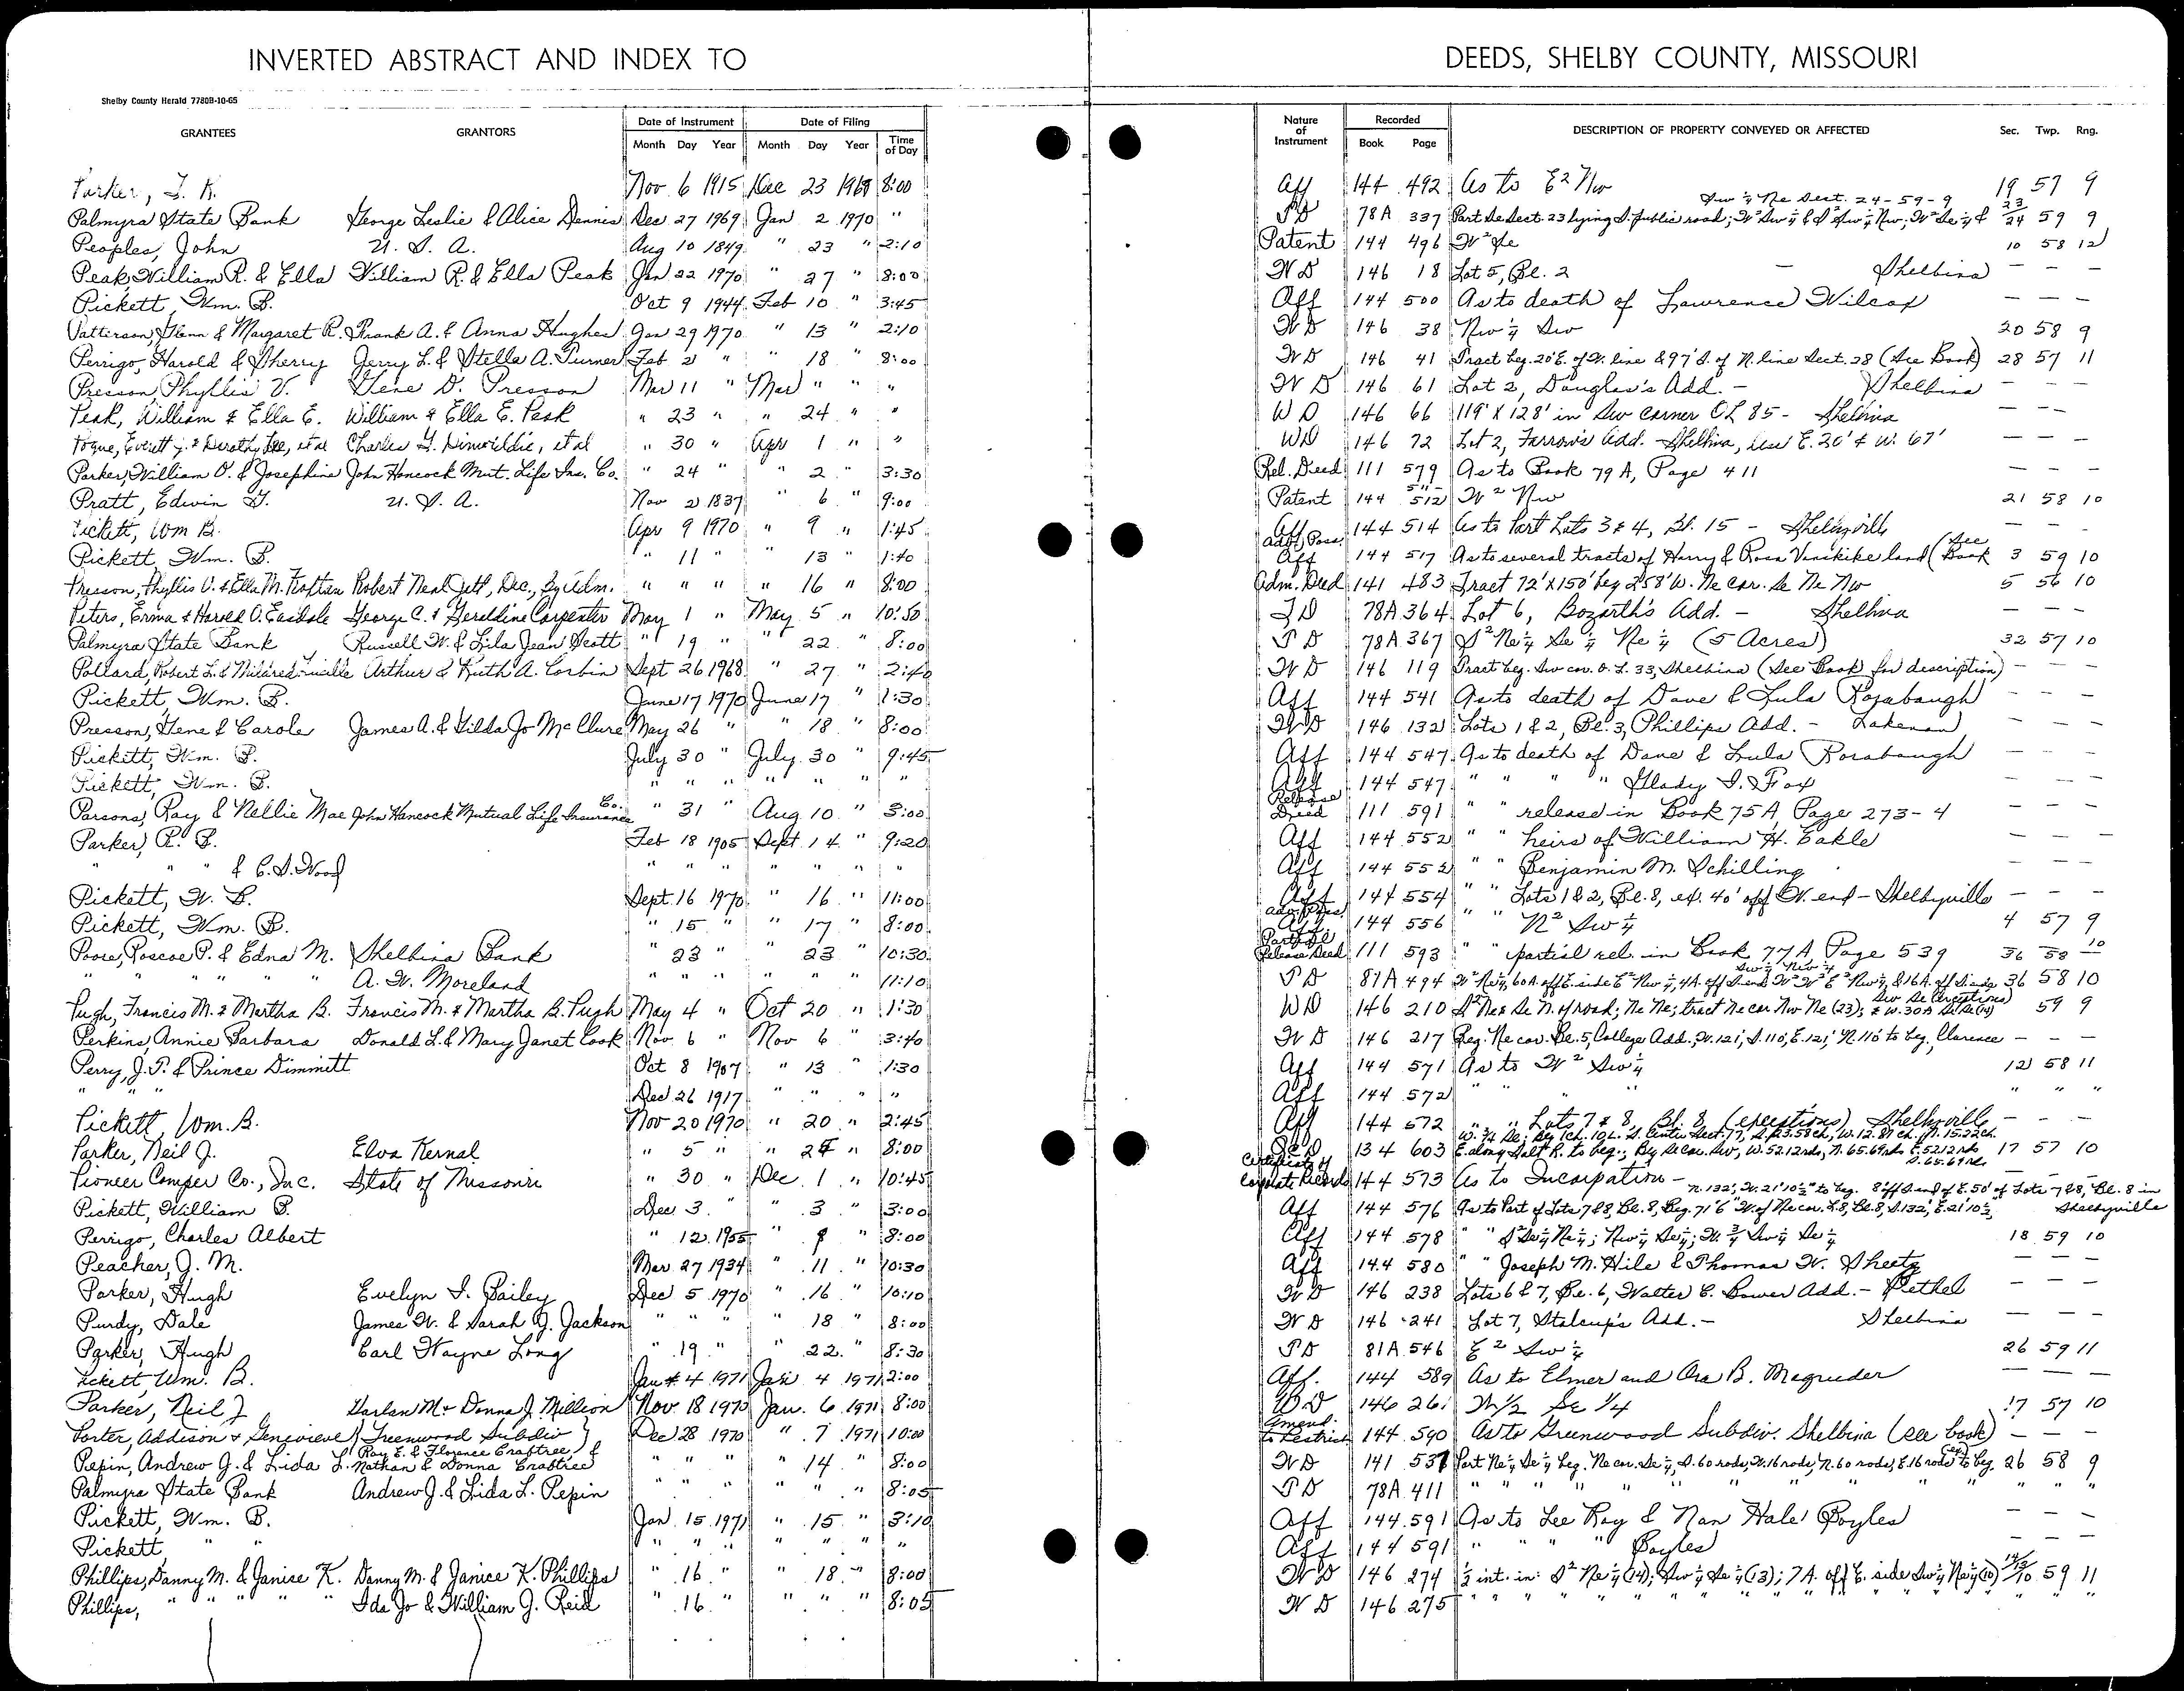 INVERTED ABSTRACT AND INDEX TO DEEDS, SHELBY COUNTY, MISSOURI
Shelby County Herald 7780B-10-65
GRANTEES GRANTORS Date of Instrument Date of Filing Nature of Instrument Recorded DESCRIPTION OF PROPERTY CONVEYED OR AFFECTED Sec. Twp. Rng.
Month Day Year Month Day Year Time of Day Book Page
Parker, Nov 6 1915 Dec 23 1969 8:00 Aff 144 492 As to E² Nw 19 57 9
Sw ¼ Ne Sect. 24-59-9
Palmyra State Bank George Leslie & Alice Dennis Dec 27 1969 Jan 2 1970 " TD 78A 337 Part Se Sect. 23 lying S. public road; W² Sw ¼ & S² Sw ¼ Nw, W² Se ¼ & 23/24 59 9
Peoples, John U. S. A. Aug 10 1849 " 23 " 2:10 Patent 144 496 W² Se 10 58 12
Peak, William R. & Ella William R. & Ella Peak Jan 22 1970 " 27 " 8:00 W D 146 18 Lot 5, Bl. 2 – Shelbina – – –
Pickett, Wm. B. Oct 9 1944 Feb 10 " 3:45 Aff 144 500 As to death of Lawrence Wilcox – – –
Patterson, Glenn & Margaret R. Frank A. & Anna Hughes Jan 29 1970 " 13 " 2:10 W D 146 38 Nw ¼ Sw 20 58 9
Perrigo, Harold & Sherry Jerry L. & Stella A. Turner Feb 2 " " 18 " 8:00 W D 146 41 Tract beg. 20' E. of W. line & 97' S. of N. line Sect. 28 (See Book) 28 57 11
Presson, Phyllis V. Gene D. Presson Mar 11 " Mar " " " W D 146 61 Lot 2, Douglas's Add. – Shelbina – – –
Peak, William & Ella E. William & Ella E. Peak " 23 " " 24 " " W D 146 66 119' X 128' in Sw corner OL 85 – Shelbina – – –
Everett J. & Dorothy Lee, et al Charles Dinwiddie, et al " 30 " Apr 1 " " WD 146 72 Lot 2, Farrow's Add. Shelbina, less E. 20' & W. 67' – – –
Parker, William O. & Josephine John Hancock Mut. Life Ins. Co. " 24 " " 2 " 3:30 Rel. Deed 111 579 As to Book 79 A, Page 411 – – –
Pratt, Edwin G. U. S. A. Nov 2 1837 " 6 " 9:00 Patent 144 511-512 W² Nw 21 58 10
Pickett, Wm B. Apr 9 1970 " 9 " 1:45 Aff 144 514 As to Part Lots 3 & 4, Bl. 15 – Shelbyville – – –
Pickett, Wm. B. " 11 " " 13 " 1:40 Adv. Poss. Aff 144 517 As to several tracts of Harry & Rosa Vanskike land (See Book 3 59 10
Presson, Phyllis V. & Ella M. Robert Neal Jett, Dec., By Adm. " " " " 16 " 8:00 Adm. Deed 141 483 Tract 72' X 150' beg 258' W. Ne cor. Se Ne Nw 5 56 10
Peters, Erma & Harold O. Easdale George C. & Geraldine Carpenter May 1 " May 5 " 10:50 TD 78A 364 Lot 6, Bozarth's Add. – Shelbina – – –
Palmyra State Bank Russell W. & Lila Jean Scott " 19 " " 22 " 8:00 TD 78A 367 S² Ne ¼ Se ¼ Ne ¼ (5 Acres) 32 57 10
Pollard, Robert L. & Mildred Lucille Arthur & Ruth A. Corbin Sept 26 1968 " 27 " 2:40 W D 146 119 Tract beg. Sw cor. O. L. 33, Shelbina (See Book) for description) – – –
Pickett, Wm. B. June 17 1970 June 17 " 1:30 Aff 144 541 As to death of Dave & Lula Rosabaugh – – –
Presson, Gene & Carole James A. & Gilda Jo McClure May 26 " " 18 " 8:00 WD 146 132 Lots 1 & 2, Bl. 3, Phillips Add. – Lakenan – – –
Pickett, Wm. B. July 30 " July 30 " 9:45 Aff 144 547 As to death of Dave & Lula Rosabaugh – – –
Pickett, Wm. B. " " " " " " " Aff 144 547 " " " " Glady I. Fox
Parsons, Ray & Nellie Mae John Hancock Mutual Life Insurance Co. " 31 " Aug 10 " 3:00 Release Deed 111 591 " " release in Book 75 A, Page 273-4 – – –
Parker, R. B. Feb 18 1905 Sept 14 " 9:20 Aff 144 552 " " heirs of William H. Eakle – – –
" " " & C. D. Wood " " " " " " " Aff 144 552 " " Benjamin M. Schilling – – –
Pickett, W. B. Sept. 16 1970 " 16 " 11:00 Aff 144 554 " " Lots 1 & 2, Bl. 8, ex. 40' off W. end – Shelbyville – – –
Pickett, Wm. B. " 15 " " 17 " 8:00 Adv. Poss. Aff 144 556 " " N² Sw ¼ 4 57 9
Poore, Roscoe P. & Edna M. Shelbina Bank " 23 " " 23 " 10:30 Partial Release Deed 111 593 " " partial rel. in Book 77 A, Page 539 36 58 10
" " " " " A. W. Moreland " " " " " " 11:10 TD 81A 494 W² Ne ¼, 60 A. off E. side E² Nw ¼, 4 A. off S. end W² W² E² Nw ¼, & 16 A. off S. side Sw ¼ Nw ¼ 36 58 10
Pugh, Francis M. & Martha B. Francis M. & Martha B. Pugh May 4 " Oct 20 " 1:30 WD 146 210 S² Ne & Se N. of road; Ne Ne; tract Ne cor Nw Ne (23); Sw Se (exceptions) & W. 30 A Se Se (14) 59 9
Perkins, Annie Barbara Donald L. & Mary Janet Cook Nov. 6 " Nov 6 " 3:40 W D 146 217 Beg. Ne cor. Bl. 5, College Add., W. 121', S. 110', E. 121', N. 110' to beg., Clarence – – –
Perry, J. P. & Prince Dimmitt Oct 8 1907 " 13 " 1:30 Aff 144 571 As to W² Sw ¼ 12 58 11
" " " Dec 26 1917 " " " " Aff 144 572 " " " " " " "
Pickett, Wm. B. Nov 20 1970 " 20 " 2:45 Aff 144 572 " " Lots 7 & 8, Bl. 8, (exceptions) Shelbyville – – –
Parker, Neil J. Elva Kernal " 5 " " 24 " 8:00 134 603 W. ¾ Se; Beg 1ch. 10L. S. Center Sect. 17, S. 23.58ch, W. 12.87 ch. N. 15.22ch. E. along Salt R. to beg.; Beg Se cor. Sw, W. 52.12rds, N. 65.69rds E. 52.12rds S. 65.69rds 17 57 10
Pioneer Camper Co., Inc. State of Missouri " 30 " Dec. 1 " 10:45 Certificate of Corporate Records 144 573 As to Incorpation – – – –
Pickett, William B. Dec 3 " " 3 " 3:00 Aff 144 576 As to Part of Lots 7 & 8, Bl. 8, Beg. 71' 6" W. of Ne cor. L. 8, Bl. 8, S. 132', E. 21' 10 ½", N. 132', W. 21' 10 ½" to beg. 8' off S. end of E. 50' of Lots 7 & 8, Bl. 8 in Shelbyville
Perrigo, Charles Albert " 12 1955 " 8 " 8:00 Aff 144 578 " " S² Se ¼ Ne ¼; Nw ¼ Se ¼; W. ¾ Sw ¼ Se ¼ 18 59 10
Peacher, J. M. Mar. 27 1934 " 11 " 10:30 Aff 144 580 " " Joseph M. Hile & Thomas W. Sheetz – – –
Parker, Hugh Evelyn I. Bailey Dec 5 1970 " 16 " 10:10 W D 146 238 Lots 6 & 7, Bl. 6, Walter C. Bower Add. – Bethel – – –
Purdy, Dale James W. & Sarah J. Jackson " " " " 18 " 8:00 W D 146 241 Lot 7, Stalcup's Add. – Shelbina – – –
Parker, Hugh Carl Wayne Long " 19 " " 22 " 8:30 TD 81A 546 E² Sw ¼ 26 59 11
Pickett, Wm. B. Jan 4 1971 Jan 4 1971 2:00 Aff. 144 589 As to Elmer and Ora B. Magruder – – –
Parker, Neil J Harlan M. & Donna J. Million Nov. 18 1970 Jan. 6 1971 8:00 WD 146 261 W ½ Se ¼ 17 57 10
Porter, Addison & Genevieve Greenwood Subdiv Dec 28 1970 " 7 1971 10:00 Amend. to Restrict 144 590 As to Greenwood Subdiv. Shelbina (see book) – – –
Pepin, Andrew J. & Lida L. Ray E. & Florence Crabtree & Nathan & Donna Crabtree " " " " 14 " 8:00 W D 141 537 Part Ne ¼ Se ¼ beg. Ne cor. Se ¼, S. 60 rods, W. 16 rods, N. 60 rods, E. 16 rods to beg. 26 58 9
Palmyra State Bank Andrew J. & Lida L. Pepin " " " " " " 8:05 TD 78A 411 " " " " " " " " " " "
Pickett, Wm. B. Jan. 15 1971 " 15 " 3:10 Aff 144 591 As to Lee Roy & Nan Hale Boyles – – –
Pickett, " " " " " " " " " Aff 144 591 " " " " Boyles – – –
Phillips, Danny M. & Janise K. Danny M. & Janice K. Phillips " 16 " " 18 " 8:00 W D 146 274 ½ int. in: S² Ne ¼ (14); Sw ¼ Se ¼ (3); 7 A. off E. side Sw ¼ Ne ¼ (10) 59 11
Phillips, " " " " " Ida Jo & William J. Reid " 16 " " " " 8:05 W D 146 275 " " " " " " " " " " "